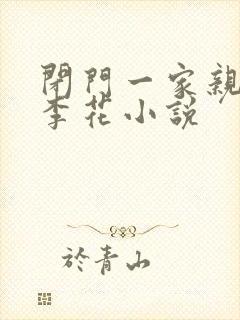 閉門一家親
李花小説
於青山